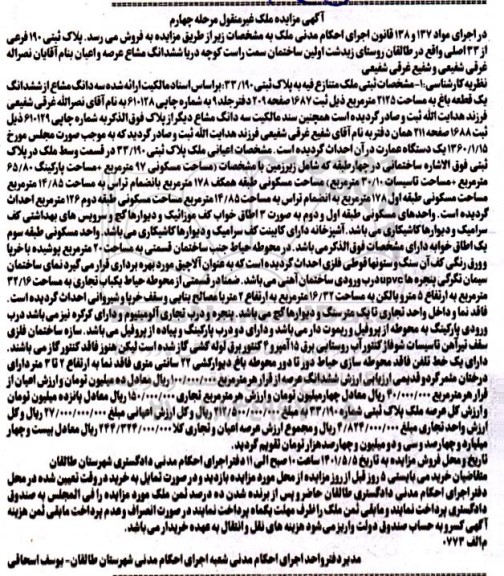 آگهی مزایده ملک غیرمنقول مرحله چهارم
در اجرای مواد ۱۳۷ و ۱۳۸ قانون اجرای احکام مدنی ملک به مشخصات زیر از طریق مزایده به فروش می رسد. پلاک ثبتی ۱۹۰ فرعی
از ۳۳ اصلی واقع در طالقان روستای زیدشت اولین ساختمان سمت راست کوچه دریا ششدانگ مشاع عرصه و اعیان بنام آقایان نصراله
غرقی شفیعی و شفیع غرقی شفیعی
نظریه کارشناسی: ۱- مشخصات ثبتی ملک متنازع فیه به پلاک ثبتی ۳۳/۱۹۰: براساس اسناد مالکیت ارائه شده سه دانگ مشاع از ششدانگ
یک قطعه باغ به مساحت ۲۱۲۵ مترمربع ذیل ثبت ۱۶۸۷ صفحه ۲۰۹ دفتر جلد ۹ به شماره چاپی ۶۱۰۱۲۸ به نام آقای نصرالله غرقی شفیعی
فرزند هدایت الله ثبت و صادر گردیده است همچنین سند مالکیت سه دانگ مشاع دیگر از پلاک فوق الذکر به شماره چاپی ۶۱۰۱۲۹ ذیل
ثبت ۱۶۸۸ صفحه ۲۱۱ همان دفتر به نام آقای شفیع غرقی شفیعی فرزند هدایت الله ثبت و صادر گردید که به موجب صورت مجلس مورخ
۱۳۶۰/۱/۱۵ یک دستگاه عمارت در آن احداث گردیده است. مشخصات اعیانی ملک پلاک ثبتی ۳۳/۱۹۰ در قسمت وسط ملک در پلاک
ثبتی فوق الاشاره ساختمانی در چهار طبقه که شامل زیرزمین با مشخصات (مساحت مسکونی ۹۷ مترمربع + مساحت پارکینگ ۶۵/۸۰
مترمربع + مساحت تاسیسات ۱۰/۲۰ مترمربع) مساحت مسکونی طبقه همکف ۱۷۸ مترمربع بانضمام تراس به مساحت ۱۴/۸۵ مترمربع
مساحت مسکونی طبقه اول ۱۷۸ مترمربع به انضمام تراس به مساحت ۱۴/۸۵ مترمربع مساحت مسکونی طبقه دوم ۱۲۶ مترمربع احداث
گردیده است. واحدهای مسکونی طبقه اول و دوم به صورت ۳ اطاق خواب کف موزائیک و دیوارها گچ و سرویس های بهداشتی کف
سرامیک و دیوارها کاشیکاری می باشد. آشپزخانه دارای کابینت کف سرامیک و دیوارها کاشیکاری می باشد. واحد مسکونی طبقه سوم
یک اطاق خوابه دارای مشخصات فوق الذکر می باشد. در محوطه حیاط جنب ساختمان قسمتی به مساحت ۲۰ مترمربع پوشیده با خرپا
و ورق رنگی کف آن سنگ و ستونها قوطی فلزی احداث گردیده است که به عنوان آلاچیق مورد بهره برداری قرار می گیرد نمای ساختمان
سیمان نگرگی پنجره ها upvc درب ورودی ساختمان آهنی می باشد. ضمنا در قسمتی از محوطه حیاط یکباب تجاری به مساحت ۳۲/۱۶
مترمربع به ارتفاع ۵ متر و بالکن به مساحت ۱۶/۳۲ مترمربع به ارتفاع ۲ متر با مصالح بنایی و سقف خرپا و شیروانی احداث گردیده است.
فاقد نما و داخل واحد تجاری تا یک متر سنگ و دیوارها گچ می باشد. پنجره و درب تجاری آلومینیوم و دارای کرکره نیز می باشد درب
ورودی پارکینگ به محوطه از پروفیل و ریموت دار می باشد و دارای دو درب پارکینگ و پیاده از پروفیل می باشد. سازه ساختمان فلزی
سقف تیرآهن تاسیسات شوفاژ کنتور آب روستایی برق ۱۵ آمپر و ۴ کنتور برق لوله کشی گاز شده است لیکن هنوز فاقد کنتور گاز می باشند.
دارای یک خط تلفن فاقد محوطه سازی حیاط دور تا دور محوطه باغ دیوارکشی ۲۲ سانتی متری فاقد نما به ارتفاع ۲ تا ۳ متر دارای
درختان مثمر گردو قدیمی ارزیابی ارزش ششدانگ عرصه از قرار هر مترمربع ۱۰۰/۰۰۰/۰۰۰ ریال معادل ده میلیون تومان و ارزش اعیان از
قرار هر مترمربع ۴۰/۰۰۰/۰۰۰ ریال معادل چهارمیلیون تومان و ارزش هر مترمربع تجاری ۱۵۰/۰۰۰/۰۰۰ ریال معادل پانزده میلیون تومان
و ارزش کل عرصه ملک پلاک ثبتی شماره ۳۳/۱۹۰ به مبلغ ۲۱۲/۵۰۰/۰۰۰/۰۰۰ ریال و کل ارزش اعیانی مبلغ ۲۷/۰۰۰/۰۰۰/۰۰۰ ریال و کل
ارزش واحد تجاری مبلغ ۴/۸۲۴/۰۰۰/۰۰۰ ریال و مجموع ارزش عرصه اعیان و تجاری کلا ۲۴۴/۳۲۴/۰۰۰/۰۰۰ ریال معادل بیست و چهار
میلیارد و چهارصد و سی و دو میلیون و چهارصد هزار تومان تقویم گردید.
تاریخ و محل فروش مزایده به تاریخ ۱۴۰۱/۵/۵ ساعت ۱۰ صبح الی ۱۱ دفتر اجرای احکام مدنی دادگستری شهرستان طالقان
متقاضیان خرید می بایستی ۵ روز قبل از روز مزایده از محل مورد مزایده بازدید و در صورت تمایل به خرید در وقت تعیین شده در محل
دفتر اجرای احکام مدنی دادگستری طالقان حاضر و پس از برنده شدن ده درصد ثمن ملک مورد مزایده را فی المجلس به صندوق
دادگستری پرداخت نمایند و مابقی ثمن ملک را ظرف مهلت یکماه پرداخت نمایند در صورت انصراف و عدم پرداخت مابقی ثمن هزینه
آگهی کسر و به حساب صندوق دولت واریز می شود هزینه های نقل و انتقال به عهده خریدار می باشد.
م الف ۰۷۷۳
مدیر دفتر واحد اجرای احکام مدنی شعبه اجرای احکام مدنی شهرستان طالقان - یوسف اسحاقی